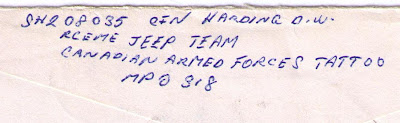 SH208035 CFN HARDING D.W.
RCEME JEEP TEAM
CANADIAN ARMED FORCES TATTOO
MPO 318